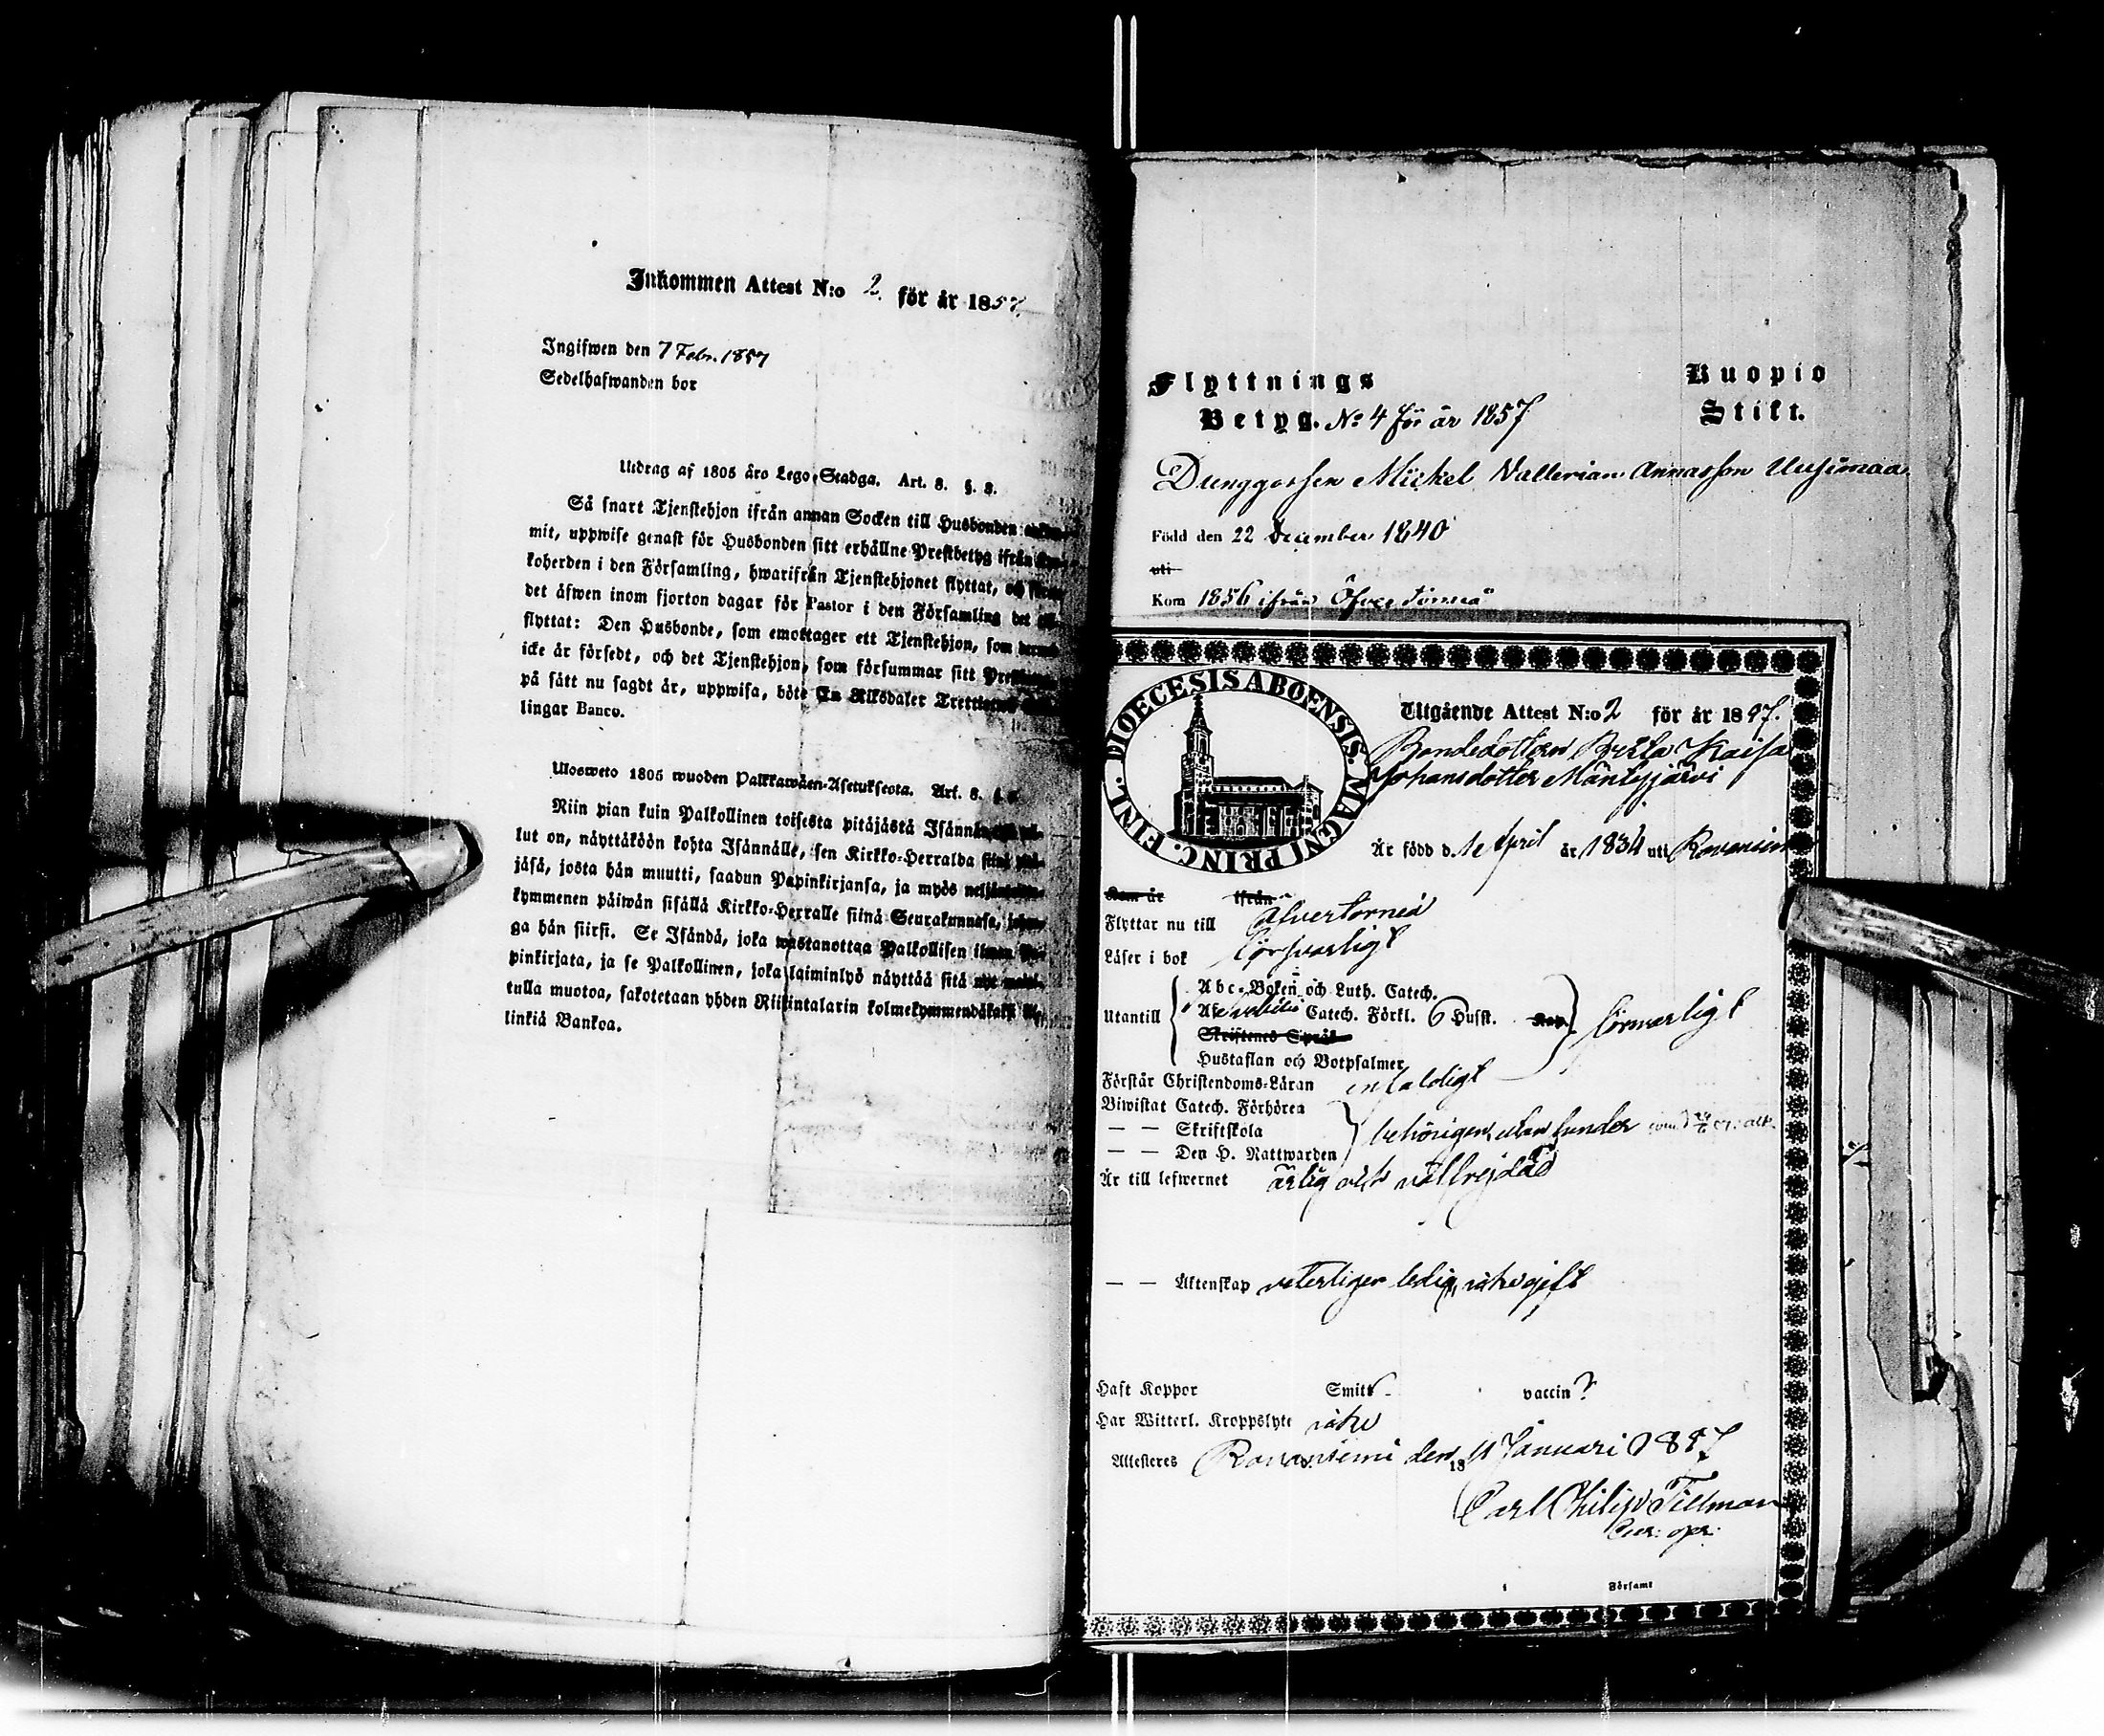 Inkommen Attest N:o 2. för år 1857.
Ingifwen den 7 Febr. 1857
Sedelhafwanden bor
Utdrag af 1805 års Lego-Stadga. Art. 8. §. 8.
Så snart Tjenstehjon ifrån annan Socken till Husbonden
mit, uppwise genast för Husbonden sitt erhållne Prestbetyg ifrån
koherden i den Församling, hwarifrån Tjenstehjonet flyttat, och
det äfwen inom fjorton dagar för Pastor i den Församling det
flyttat: Den Husbonde, som emottager ett Tjenstehjon, som
icke är försedt, och det Tjenstehjon, som försummar sitt
på sätt nu sagdt är, uppwisa, böte En Riksdaler
lingar Banco.
Ulosweto 1805 wuoden Palkkawäen-Asetuksesta. Art. 8.
Niin pian kuin Palkollinen toisesta pitäjästä
lut on, näyttäköön kohta Isännälle, sen Kirkko-Herralda
jäsä, josta hän muutti, saadun Papinkirjansa, ja myös
kymmenen päiwän sisällä Kirkko-Herralle siinä Seurakunnasa,
ga hän siirsi. Se Isändä, joka wastanottaa Palkollisen ilman
pinkirjata, ja se Palkollinen, joka laiminlyö näyttää sitä
tulla muotoa, sakotetaan yhden Riikintalarin
linkiä Bankoa.
Flyttnings
Kuopio
Betyg. No 4 för år 1857
Stift.
Drenggossen Mickel Vallerian Annasson Uusimaa
Född den 22 December 1840
uti
Kom 1856 ifrån Öfver Torneå
DIOECESIS ABOENSIS. MAGNI PRINC. FINL.
Utgående Attest N:o 2 för år 1857.
Bondedottern Brita Kaisa
Johansdotter Mäntyjärvi
Är född d. 1e April år 1834 uti
Kom år ifrån
Flyttar nu till Öfvertorneå
Läser i bok försvarligt
Utantill
Abc-Boken och Luth. Catech.
Catech. Förkl. Husst.
försvarligt
Skriftenes Språk
Hustaflan och Botpsalmer
Förstår Christendoms-Läran enfaldigt
Biwistat Catech. Förhören
— — Skriftskola
behörigen, utan hinder
— — Den H. Nattwarden
Är till lefwernet ärlig och välfrejdad
— — Äktenskap veterligen ledig, icke gift
Haft Koppor Smitt vaccin?
Har Witterl. Kroppslyte icke
Attesteras Rovaniemi den 11 Januari 1857
18
Carl Philip Tillman
Församl